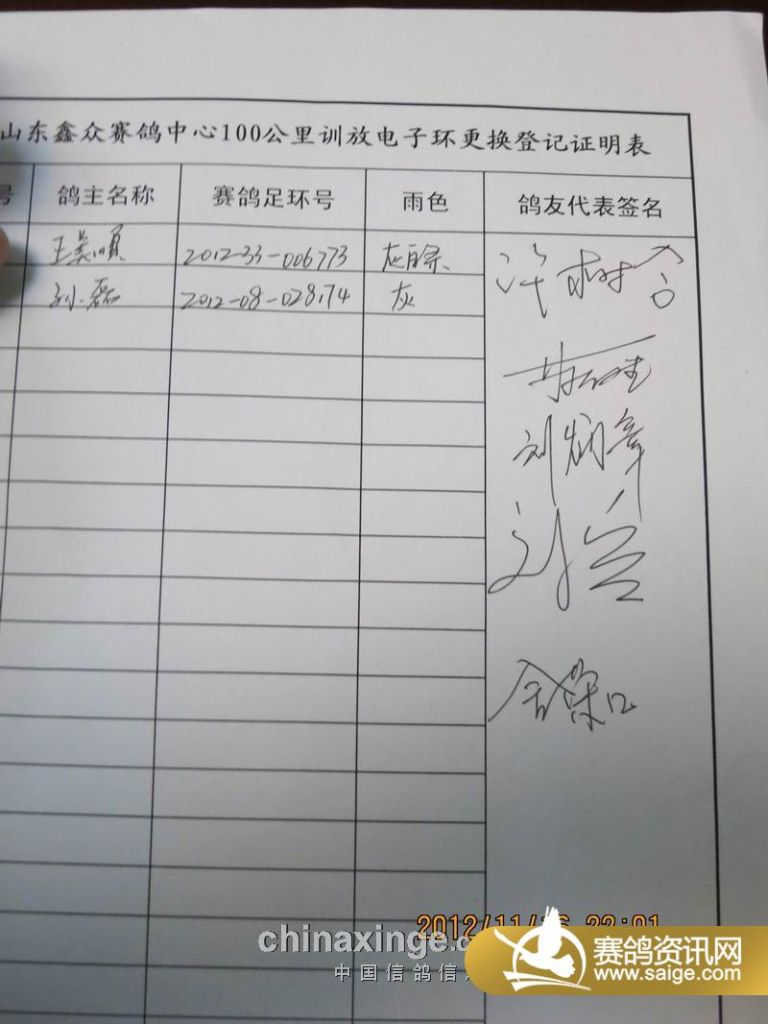 山东鑫众赛鸽中心100公里训放电子环更换登记证明表
号 鸽主名称 赛鸽足环号 雨色 鸽友代表签名
2012-33-006773
孙磊 2012-08-028174 灰
许树合
刘炳章
刘兰
2012/11/16 22:01
chinaxinge.c
中国信鸽信
赛鸽资讯网
www.saige.com